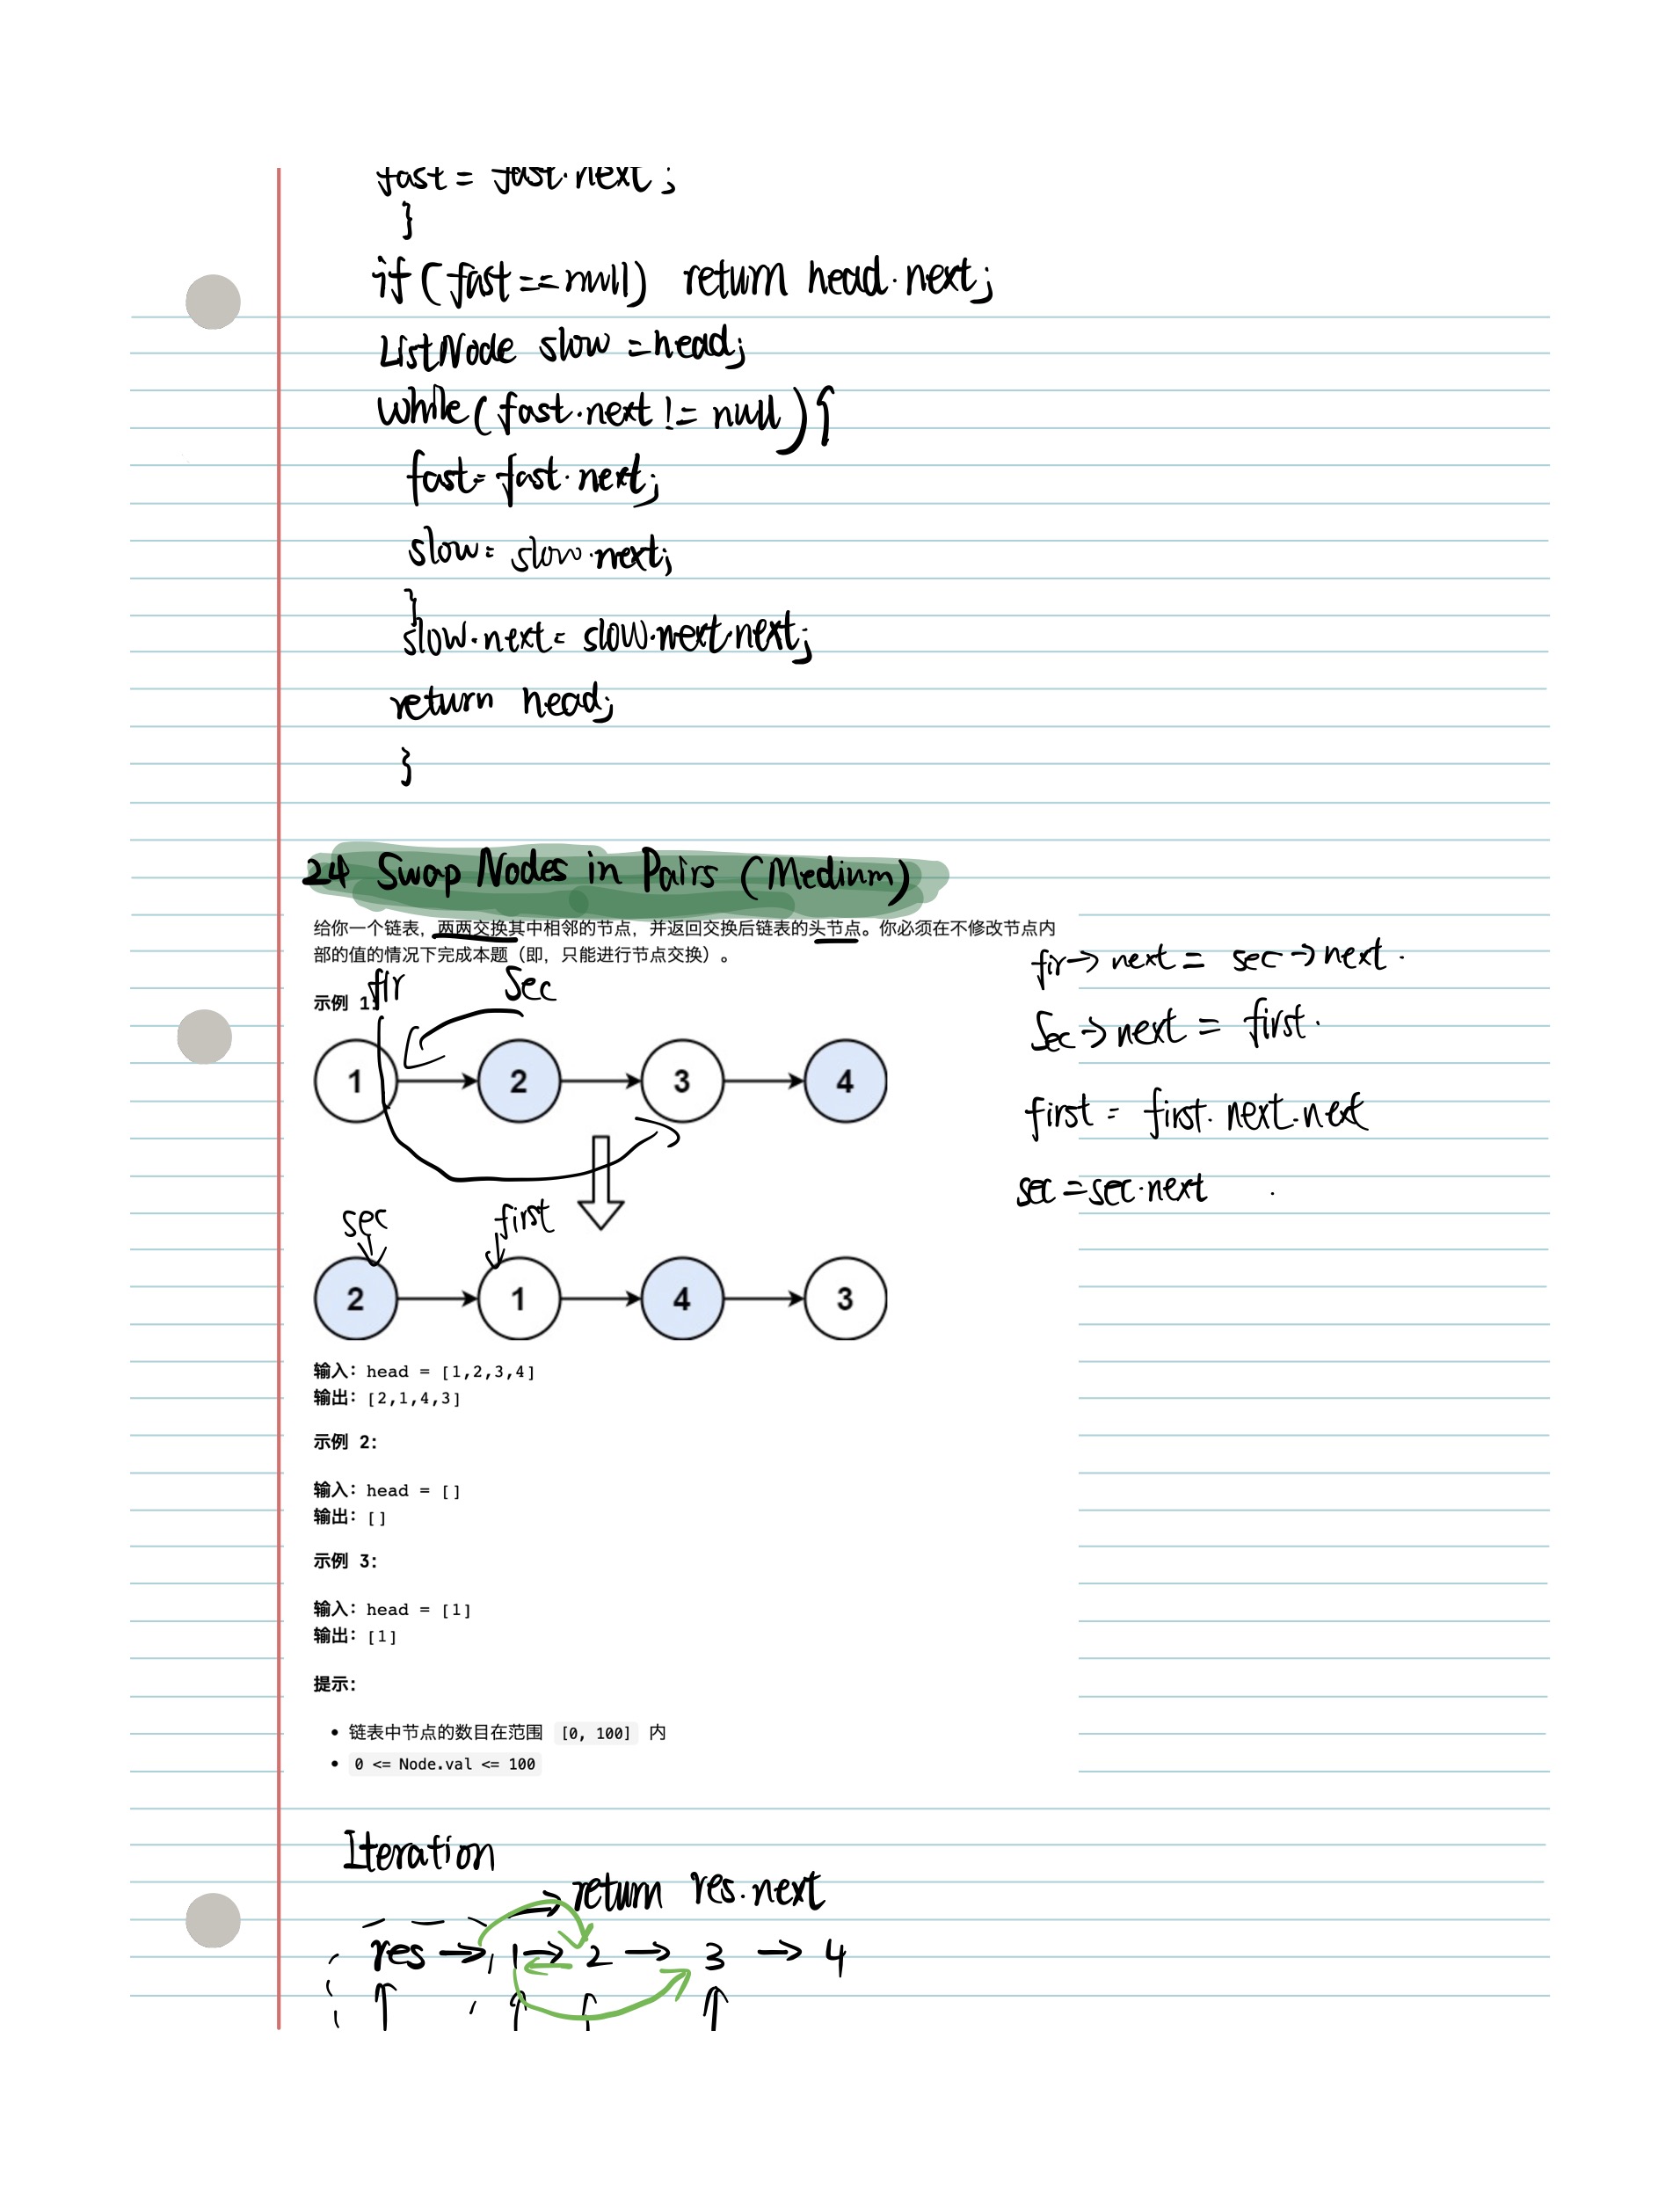 fast = fast.next;
}
if (fast == null) return head.next;
ListNode slow = head;
while (fast.next != null) {
fast = fast.next;
slow = slow.next;
}
slow.next = slow.next.next;
return head;
}
24 Swap Nodes in Pairs (Medium)
给你一个链表，两两交换其中相邻的节点，并返回交换后链表的头节点。你必须在不修改节点内
部的值的情况下完成本题（即，只能进行节点交换）。
fir → next = sec → next.
示例 1:
fir
Sec
Sec → next = first.
1 2 3 4
first = first.next.next
sec = sec.next
sec
first
2 1 4 3
输入：head = [1,2,3,4]
输出：[2,1,4,3]
示例 2:
输入：head = []
输出：[]
示例 3:
输入：head = [1]
输出：[1]
提示：
• 链表中节点的数目在范围 [0, 100] 内
• 0 <= Node.val <= 100
Iteration
→ return res.next
res → 1 → 2 → 3 → 4